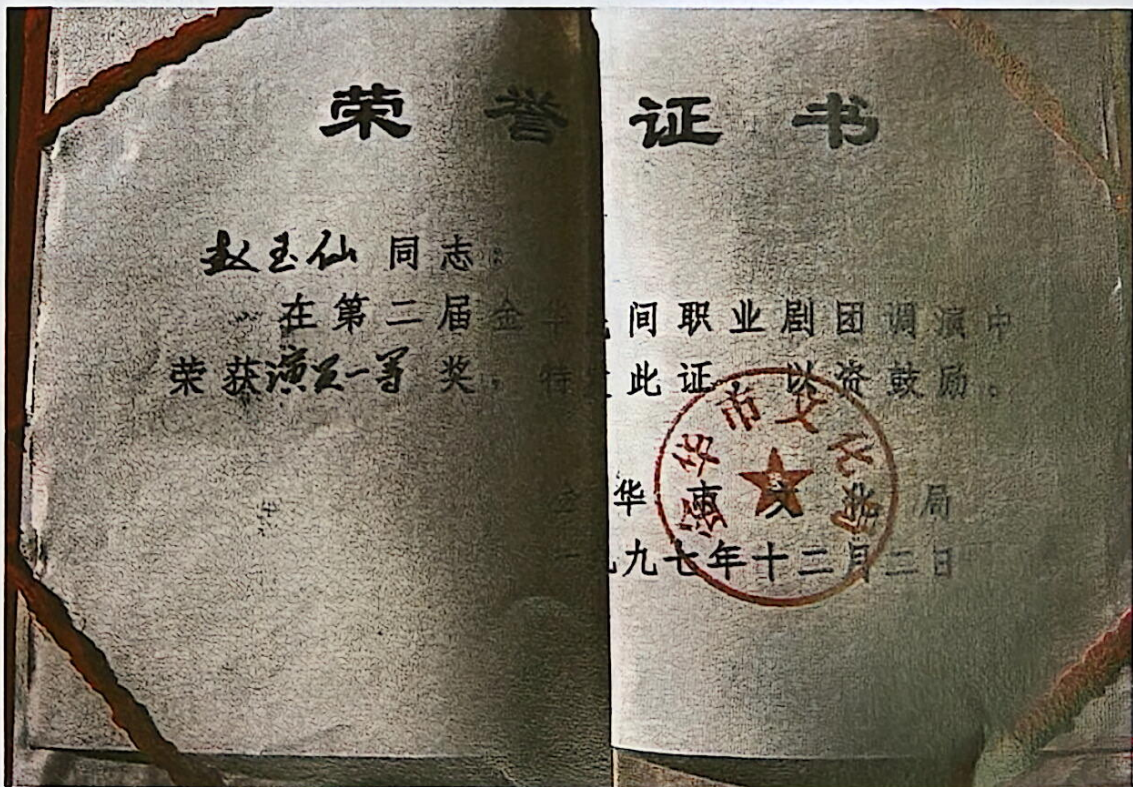 荣誉证书
赵玉仙同志：
在第二届金华 间职业剧团调演中
荣获演员一等奖，特 此证，以资鼓励。
金华市文化局
一九九七年十二月二日
华市文化局